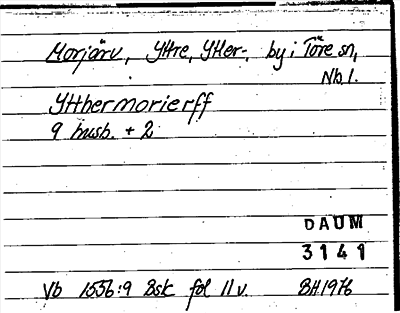 Morjärv, Yttre, Ytter-, by i Töre sn,
Nb l.
Ytthermorierff
9 hush. + 2
DAUM
3141
Vb 1556:9 Bsk fol 11 v. BH 1976